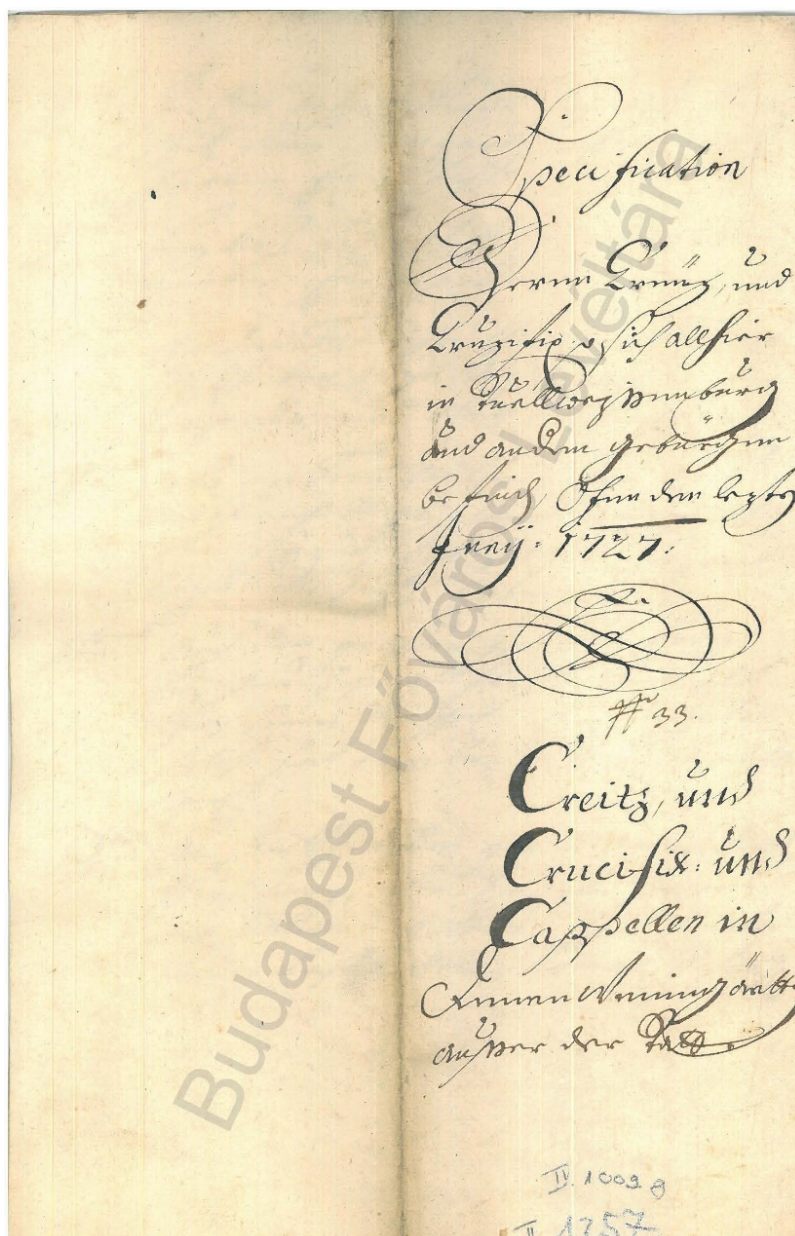 Specification
Deren Creütz, und
Cruzifix so sich allhier
in Stuellweissenburg
und anden gebürgen
befind, Ofen den lezten
Juny: 1727:
# 33.
Creitz, und
Crucifix: und
Cappellen in
denen Weingärtt
ausser der Statt
IV. 1009 g
II 1357
Budapest Főváros Levéltára